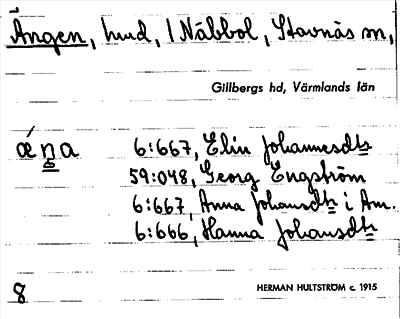 Ängen, hmd, i Näbbol, Stavnäs sn,
Gillbergs hd, Värmlands län
ǽn̳a 6:667, Elin Johannesdtr
59:048, Georg Engström
6:667, Anna Johansdtr i Am.
6:666, Hanna Johansdtr
8
HERMAN HULTSTRÖM c. 1915